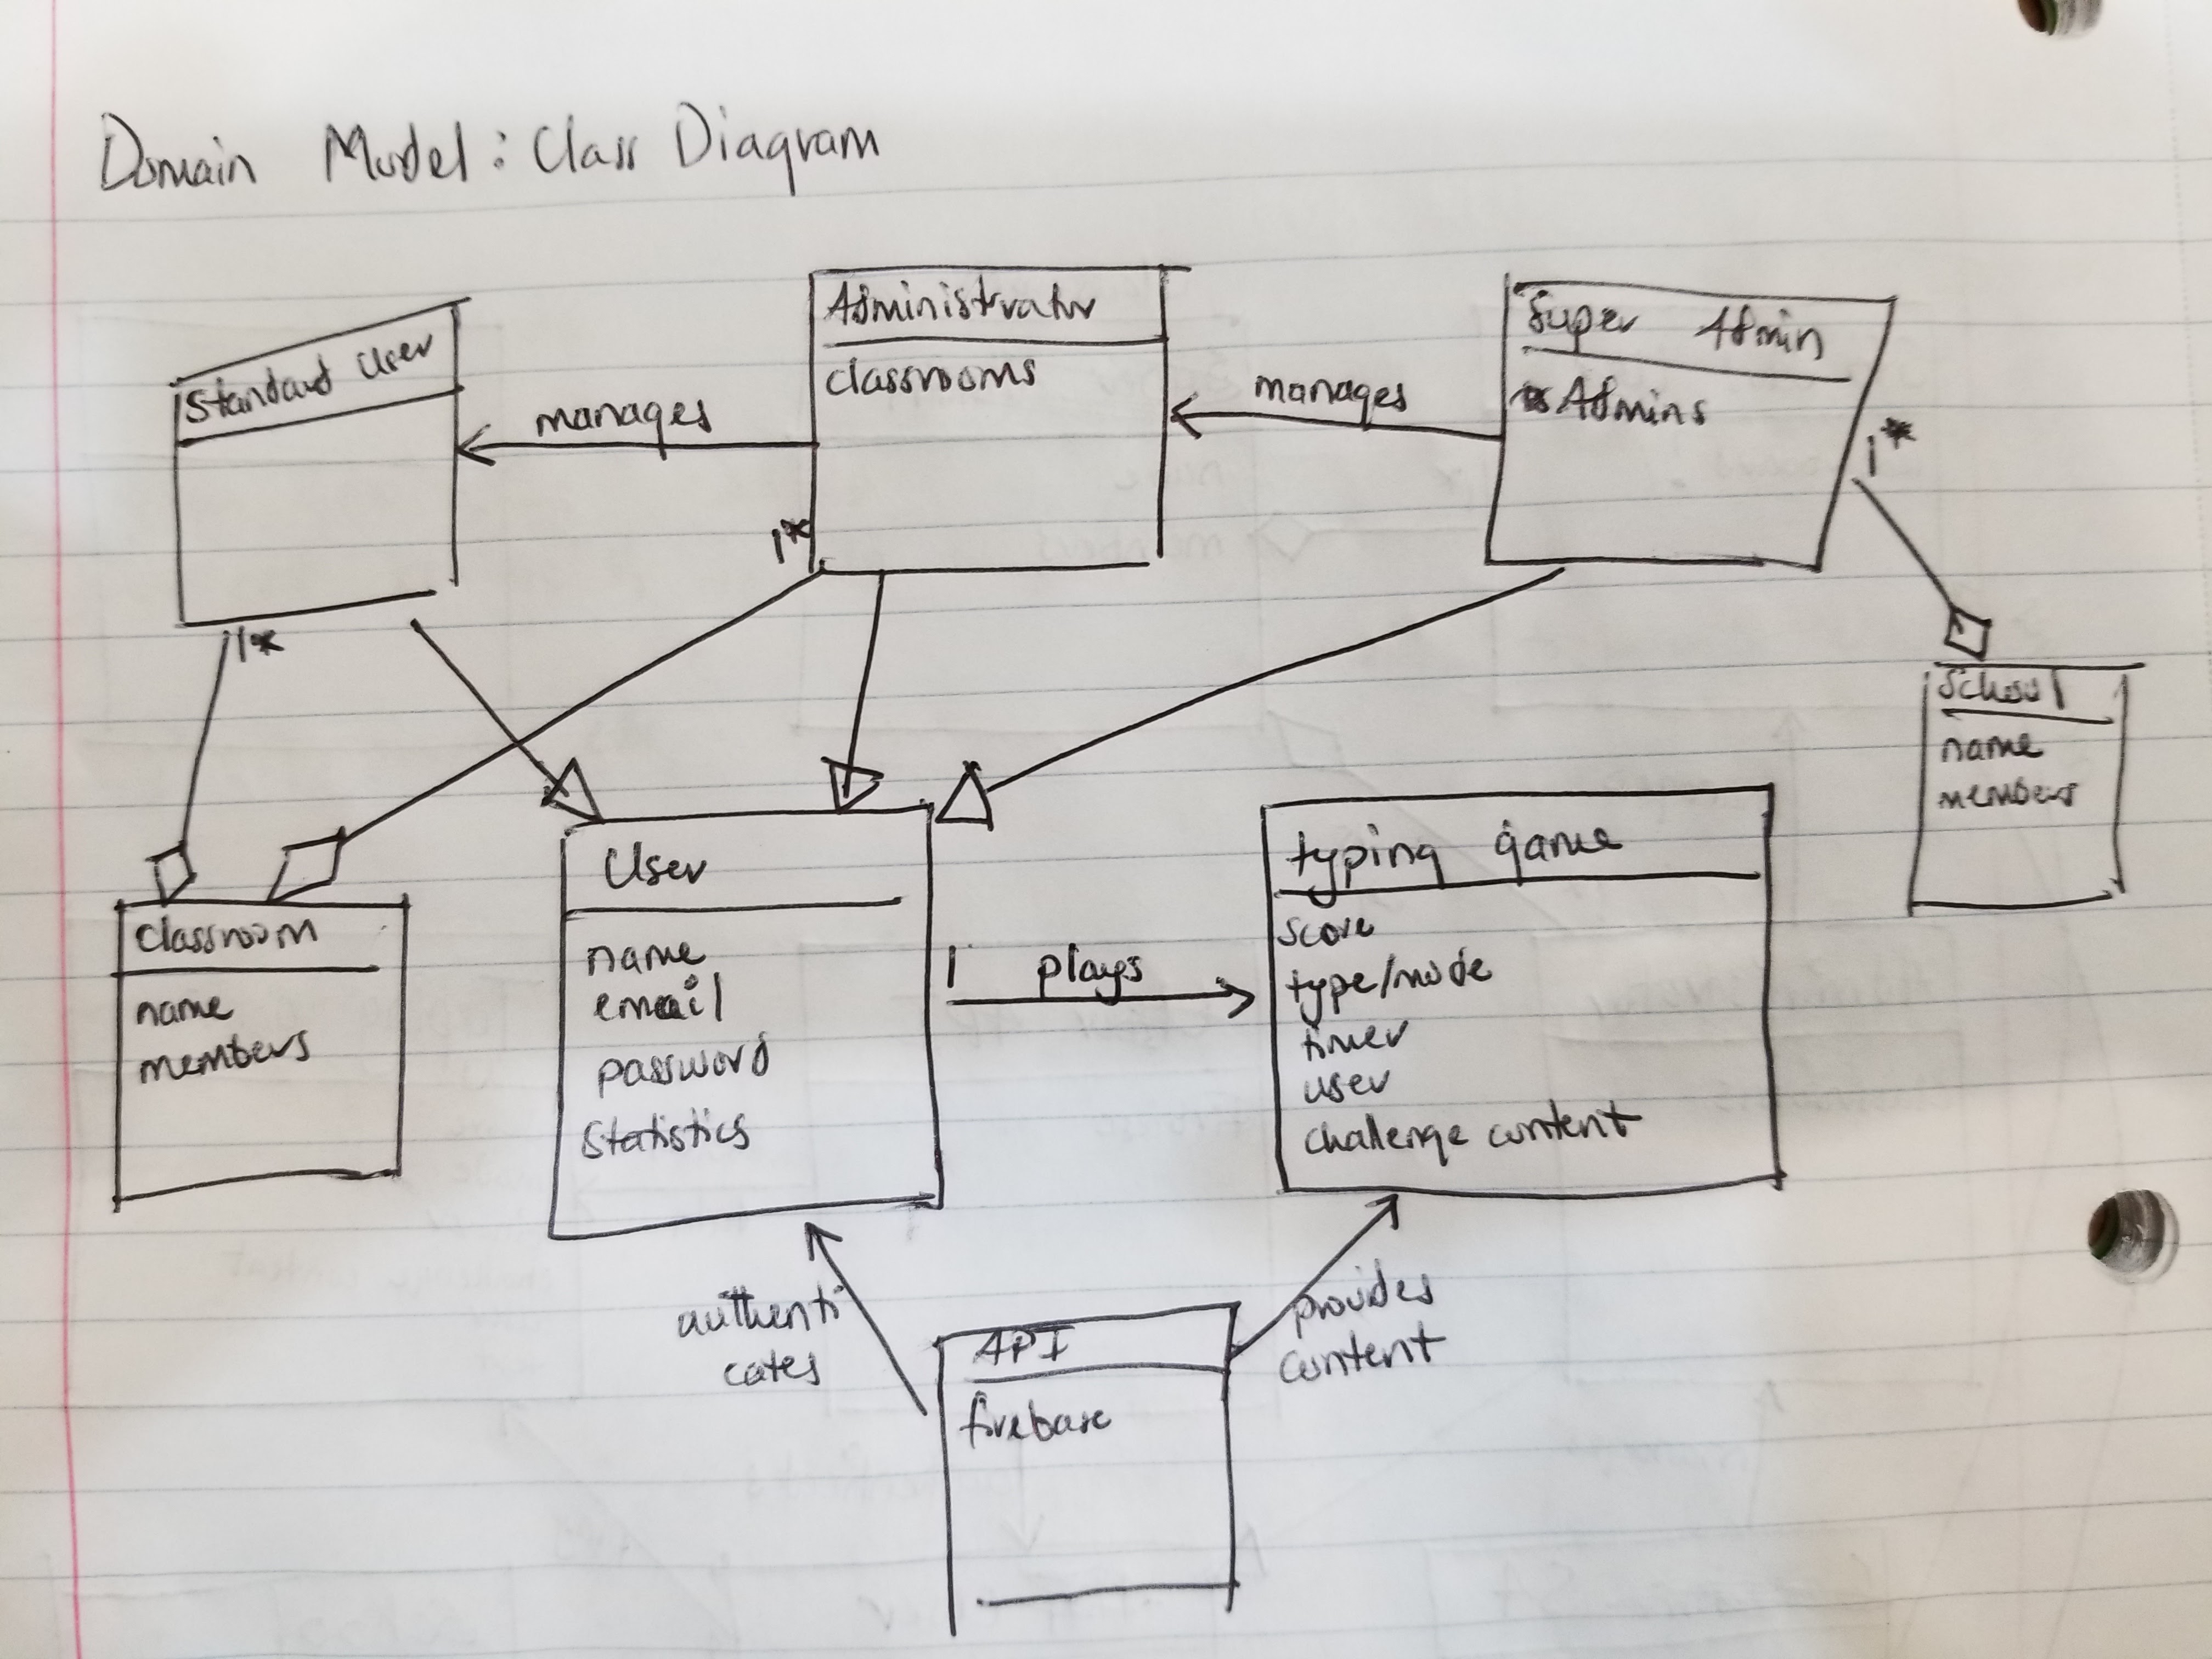 Domain Model: Class Diagram
Standard User
manages
Administrator
classrooms
manages
Super Admin
Admins
1*
1*
1*
School
name
members
Classroom
name
members
User
name
email
password
Statistics
1
plays
typing game
score
type/mode
timer
user
challenge content
authenti
cates
API
firebase
provides
content